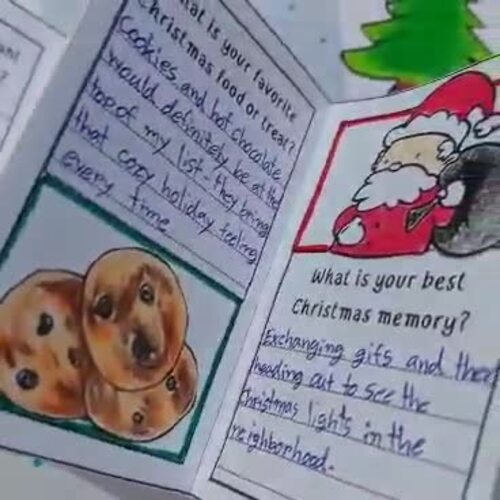 hat is your favorite
Christmas food or treat?
Cookies and hot chocolate
would definitely be at the
top of my list. they bring
that cozy holiday feeling
every time
What is your best
Christmas memory?
Exchanging gifs and then
heading out to see the
Christmas lights in the
neighborhood.